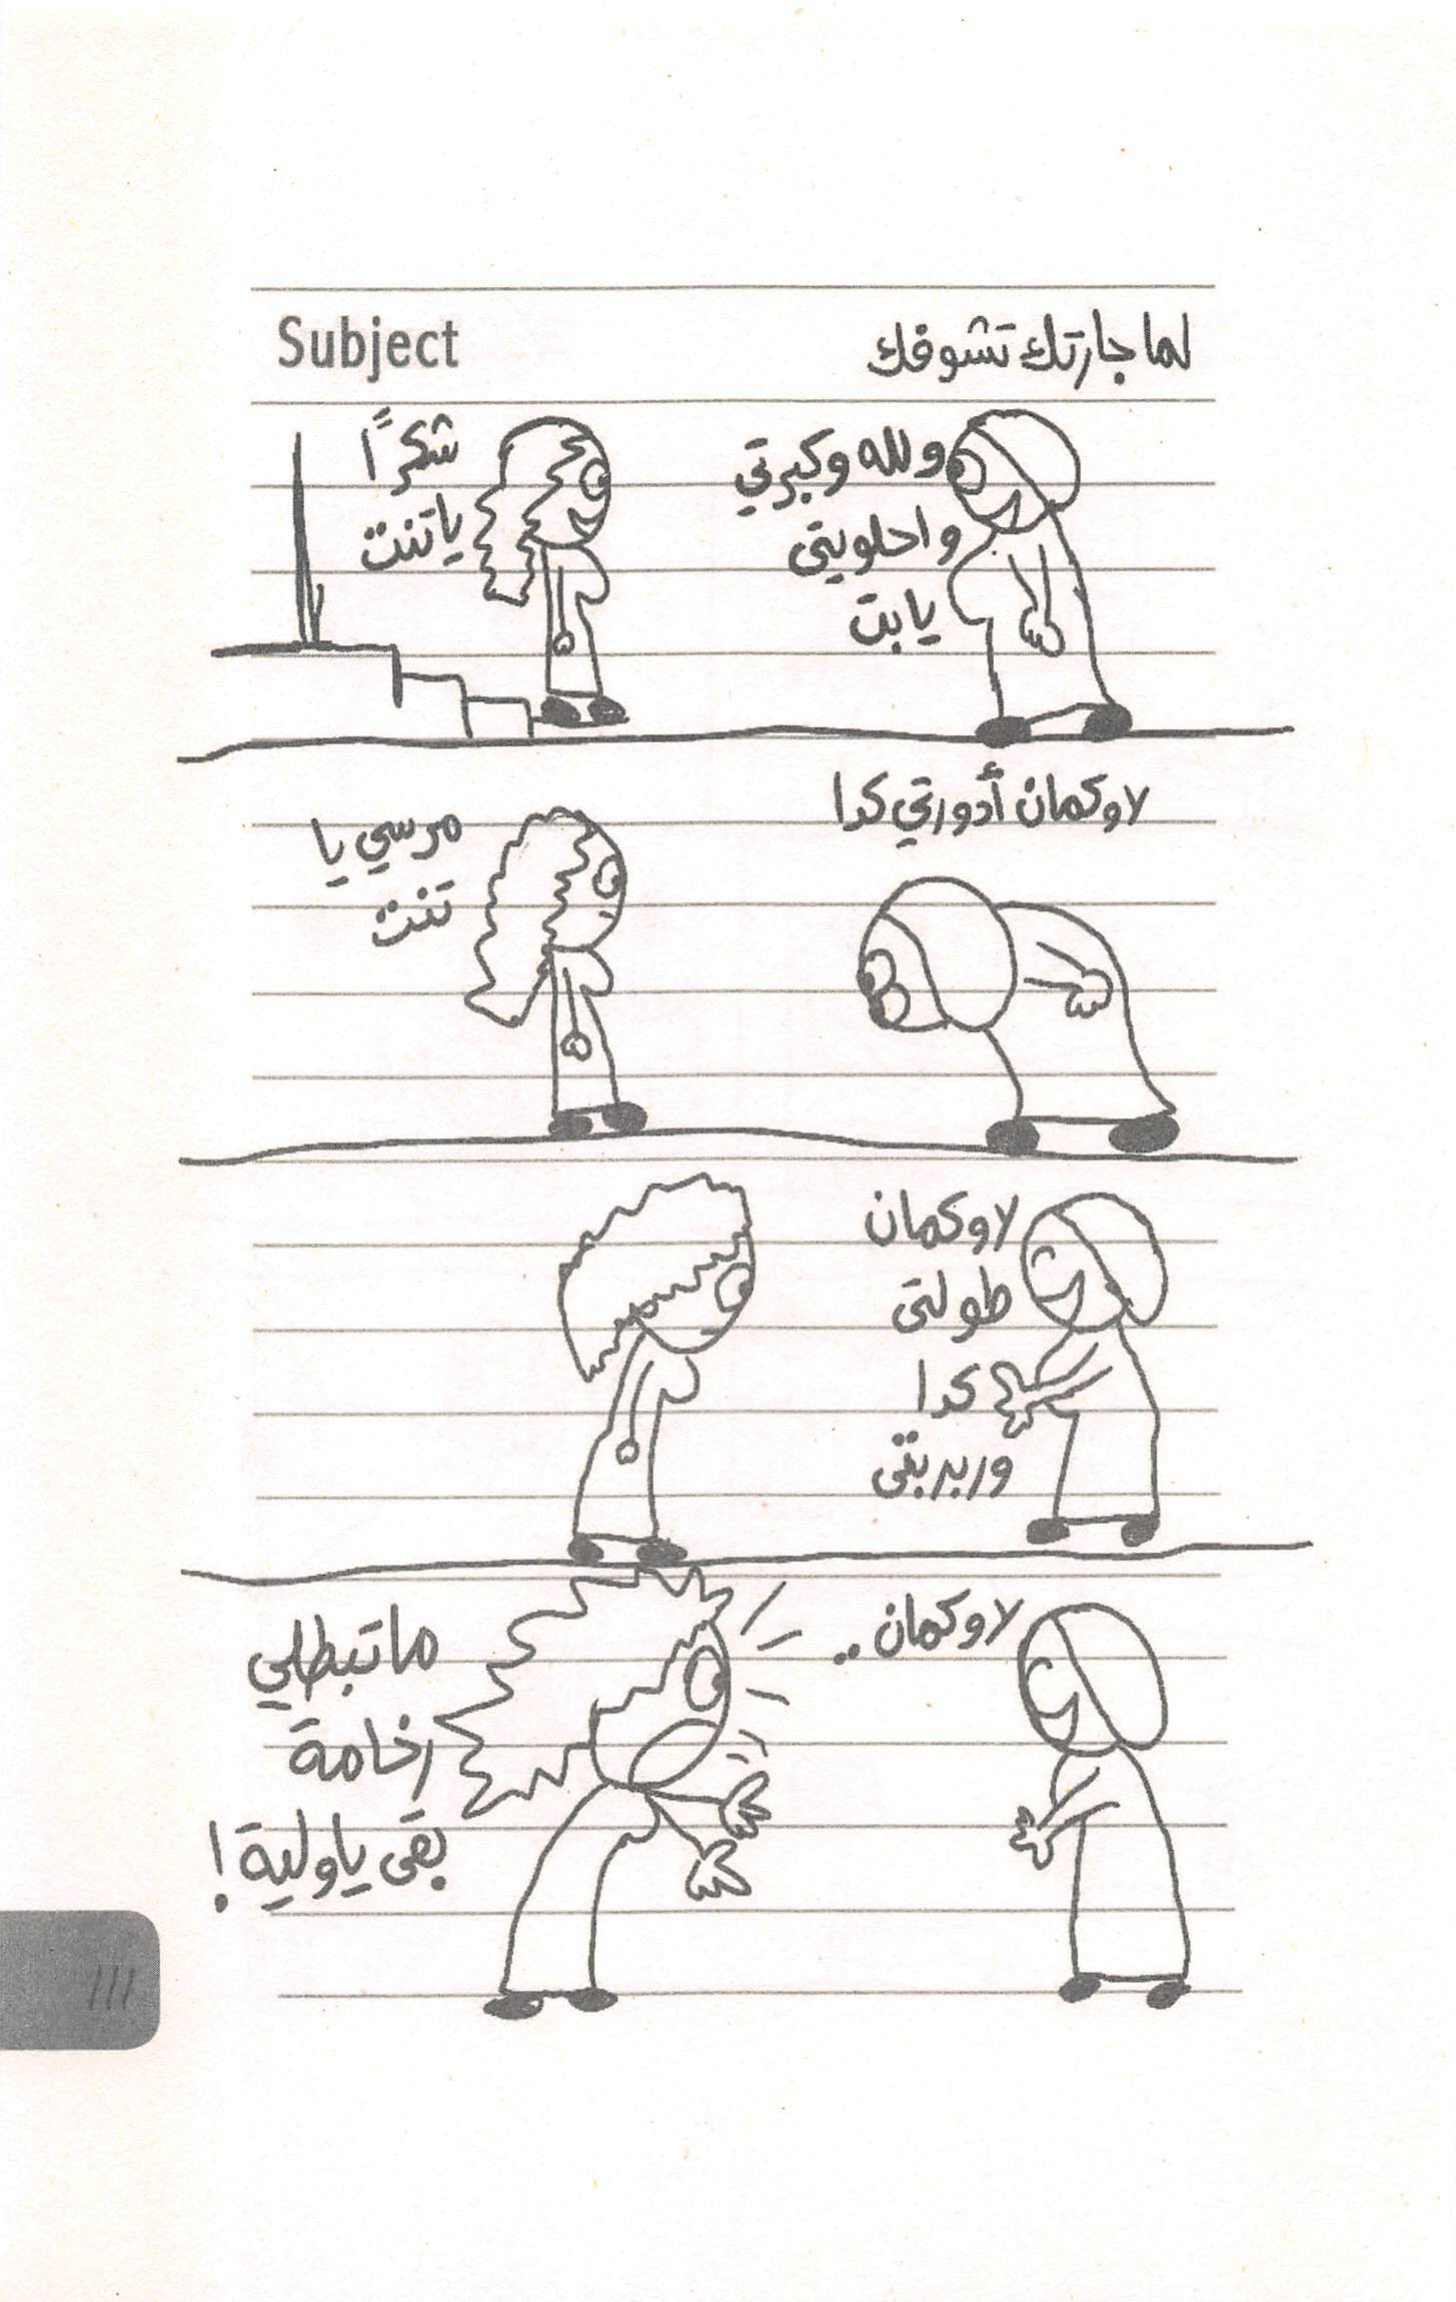 لما جارتك تشوفك
Subject
ولله وكبرتي
واحلويتى
يابت
شكرًا
ياتنت
لاوكمان أدورتي كدا
مرسي يا
تنت
لاوكمان
طولتى
كدا
وربربتى
لاوكمان..
ماتبطلي
رخامة
بقى ياولية!
111